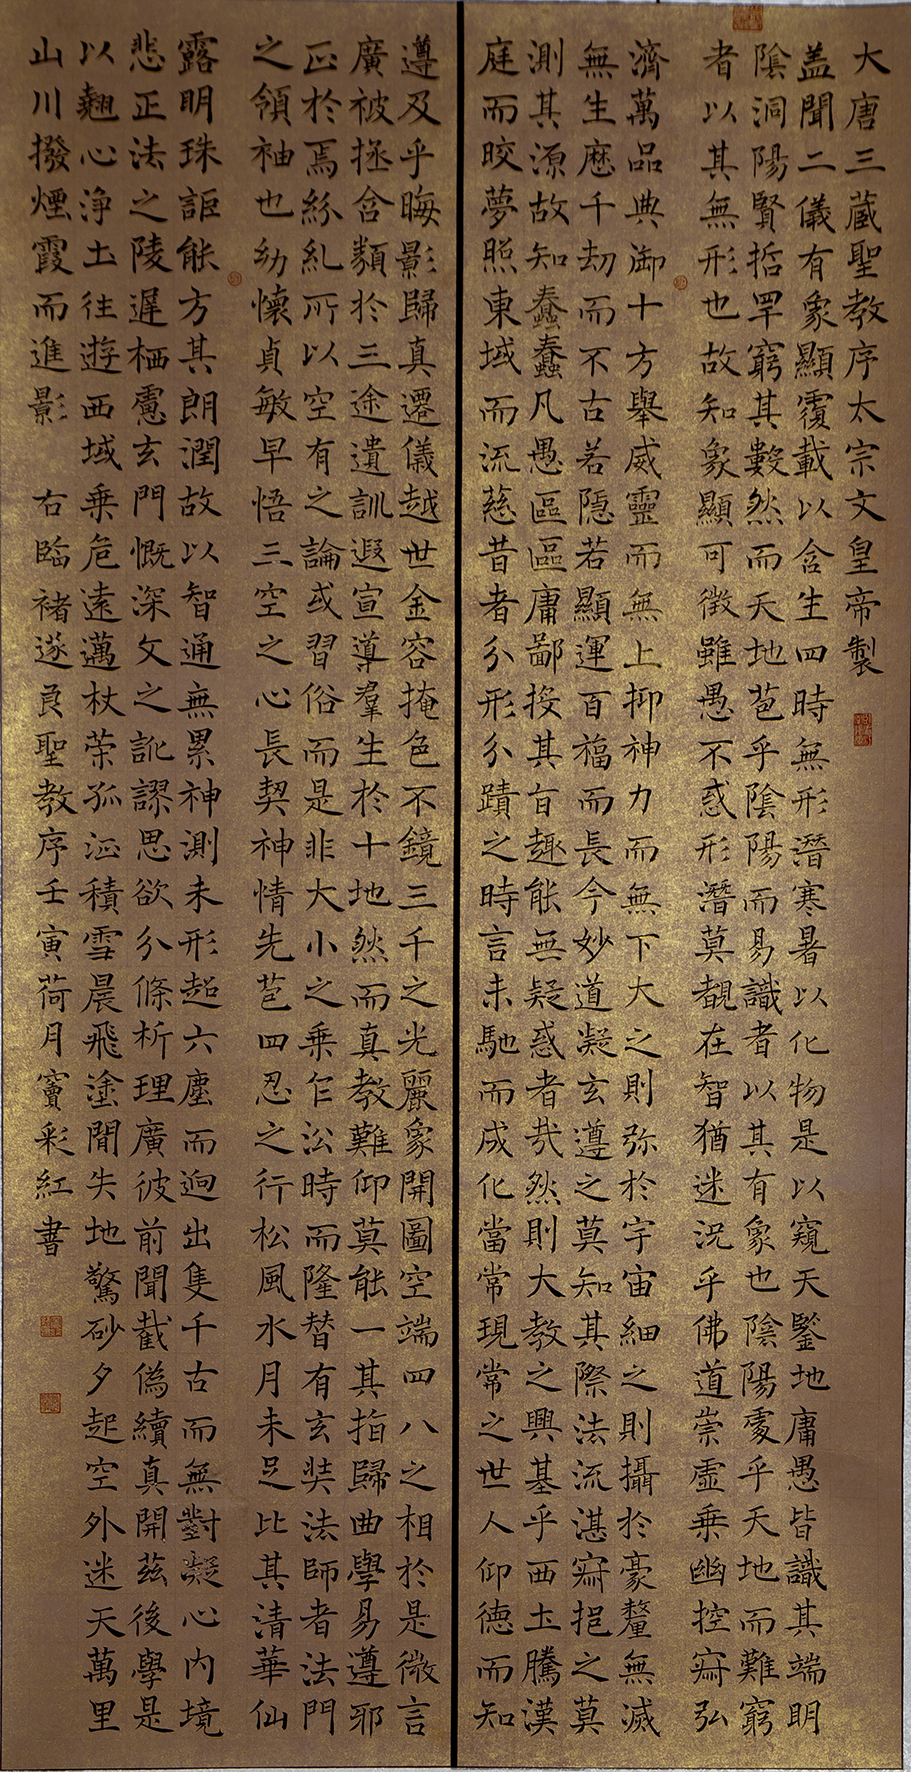 大唐三藏聖教序太宗文皇帝製
盖聞二儀有象顯覆載以含生四時無形潛寒暑以化物是以窺天鑒地庸愚皆識其端明
陰洞陽賢哲罕窮其數然而天地苞乎陰陽而易識者以其有象也陰陽處乎天地而難窮
者以其無形也故知象顯可徵雖愚不惑形潛莫覩在智猶迷況乎佛道崇虛乘幽控寂弘
濟萬品典御十方舉威靈而無上抑神力而無下大之則弥於宇宙細之則攝於豪釐無滅
無生歷千劫而不古若隱若顯運百福而長今妙道凝玄遵之莫知其際法流湛寂挹之莫
測其源故知蠢蠢凡愚區區庸鄙投其旨趣能無疑惑者哉然則大教之興基乎西土騰漢
庭而皎夢照東域而流慈昔者分形分蹟之時言未馳而成化當常現常之世人仰德而知
遵及乎晦影歸真遷儀越世金容掩色不鏡三千之光麗象開圖空端四八之相於是微言
廣被拯含類於三途遺訓遐宣導羣生於十地然而真教難仰莫能一其指歸曲學易遵邪
正於焉紛糺所以空有之論或習俗而是非大小之乘乍沿時而隆替有玄奘法師者法門
之領袖也幼懷貞敏早悟三空之心長契神情先苞四忍之行松風水月未足比其清華仙
露明珠詎能方其朗潤故以智通無累神測未形超六塵而迥出隻千古而無對凝心內境
悲正法之陵遲栖慮玄門慨深文之訛謬思欲分條析理廣彼前聞截偽續真開茲後學是
以翹心淨土往遊西域乘危遠邁杖策孤征積雪晨飛塗間失地驚砂夕起空外迷天萬里
山川撥煙霞而進影 右臨褚遂良聖教序壬寅荷月竇彩紅書